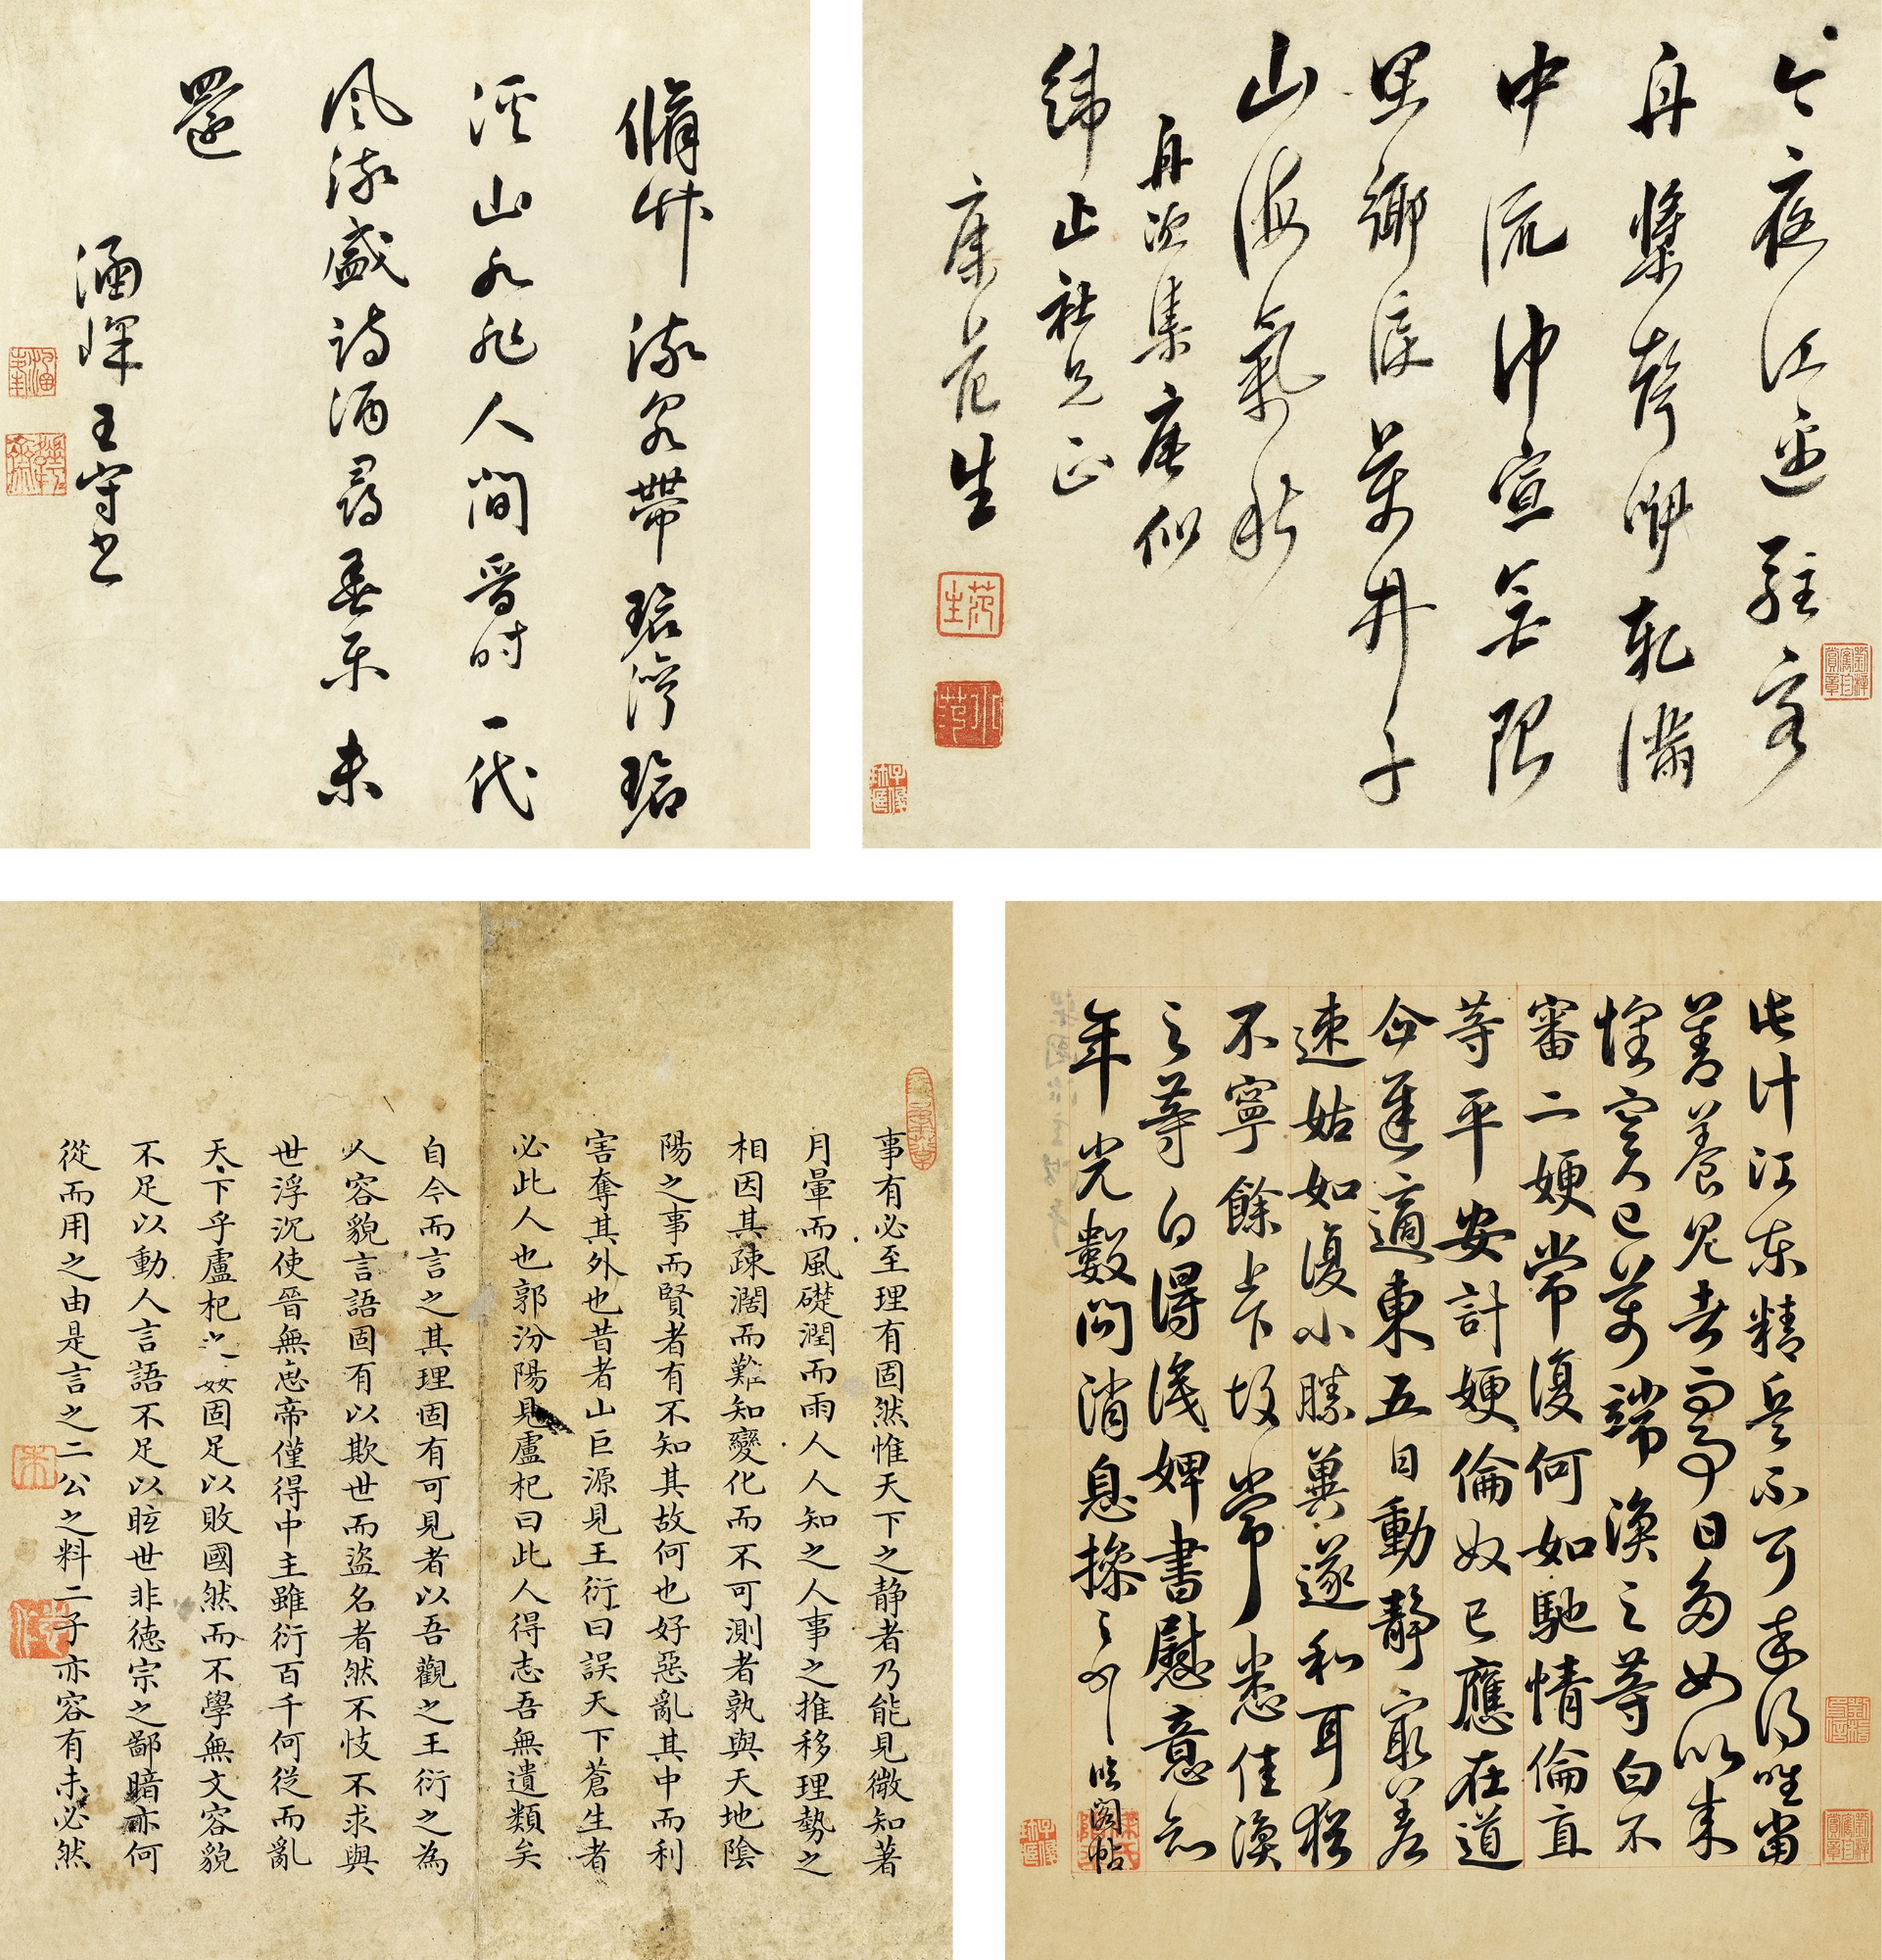 今夜江邊駐客
舟槳聲咿軋滿
中流巾宣無限
思鄉淚萬井千
山海氣秋
舟次集唐似
緯止社兄正
康范生
范生
脩竹流泉帶碧灣碧
溪山水非人間晉時一代
風流盛詩酒尋春樂未
還
涵峰王守書
此什江東精兵不可來得唯當
善養見者尋日多如以來
惶實已萬端渙之等白不
審二嫂常復何如馳情倫直
等平安計嫂倫奴已應在道
企遲適東五日動靜寂差
速姑如復小勝冀遂和耳猶
不寧餘上下故常悉佳渙
之等白得淺婢書慰意知
年光數問消息操之
臨閣帖
事有必至理有固然惟天下之靜者乃能見微知著
月暈而風礎潤而雨人人知之人事之推移理勢之
相因其疎濶而難知變化而不可測者孰與天地陰
陽之事而賢者有不知其故何也好惡亂其中而利
害奪其外也昔者山巨源見王衍曰誤天下蒼生者
必此人也郭汾陽見盧杞曰此人得志吾無遺類矣
自今而言之其理固有可見者以吾觀之王衍之為
人容貌言語固有以欺世而盜名者然不忮不求與
世浮沉使晉無惠帝僅得中主雖衍百千何從而亂
天下乎盧杞之姦固足以敗國然而不學無文容貌
不足以動人言語不足以眩世非德宗之鄙暗亦何
從而用之由是言之二公之料二子亦容有未必然